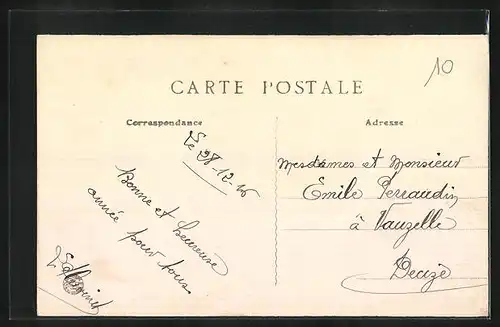 10
CARTE POSTALE
Correspondance
Adresse
Le 28-12-16
Bonne et heureuse
année pour tous
Mesdames et Monsieur
Emile Perraudin
à Vauzelle
Decize